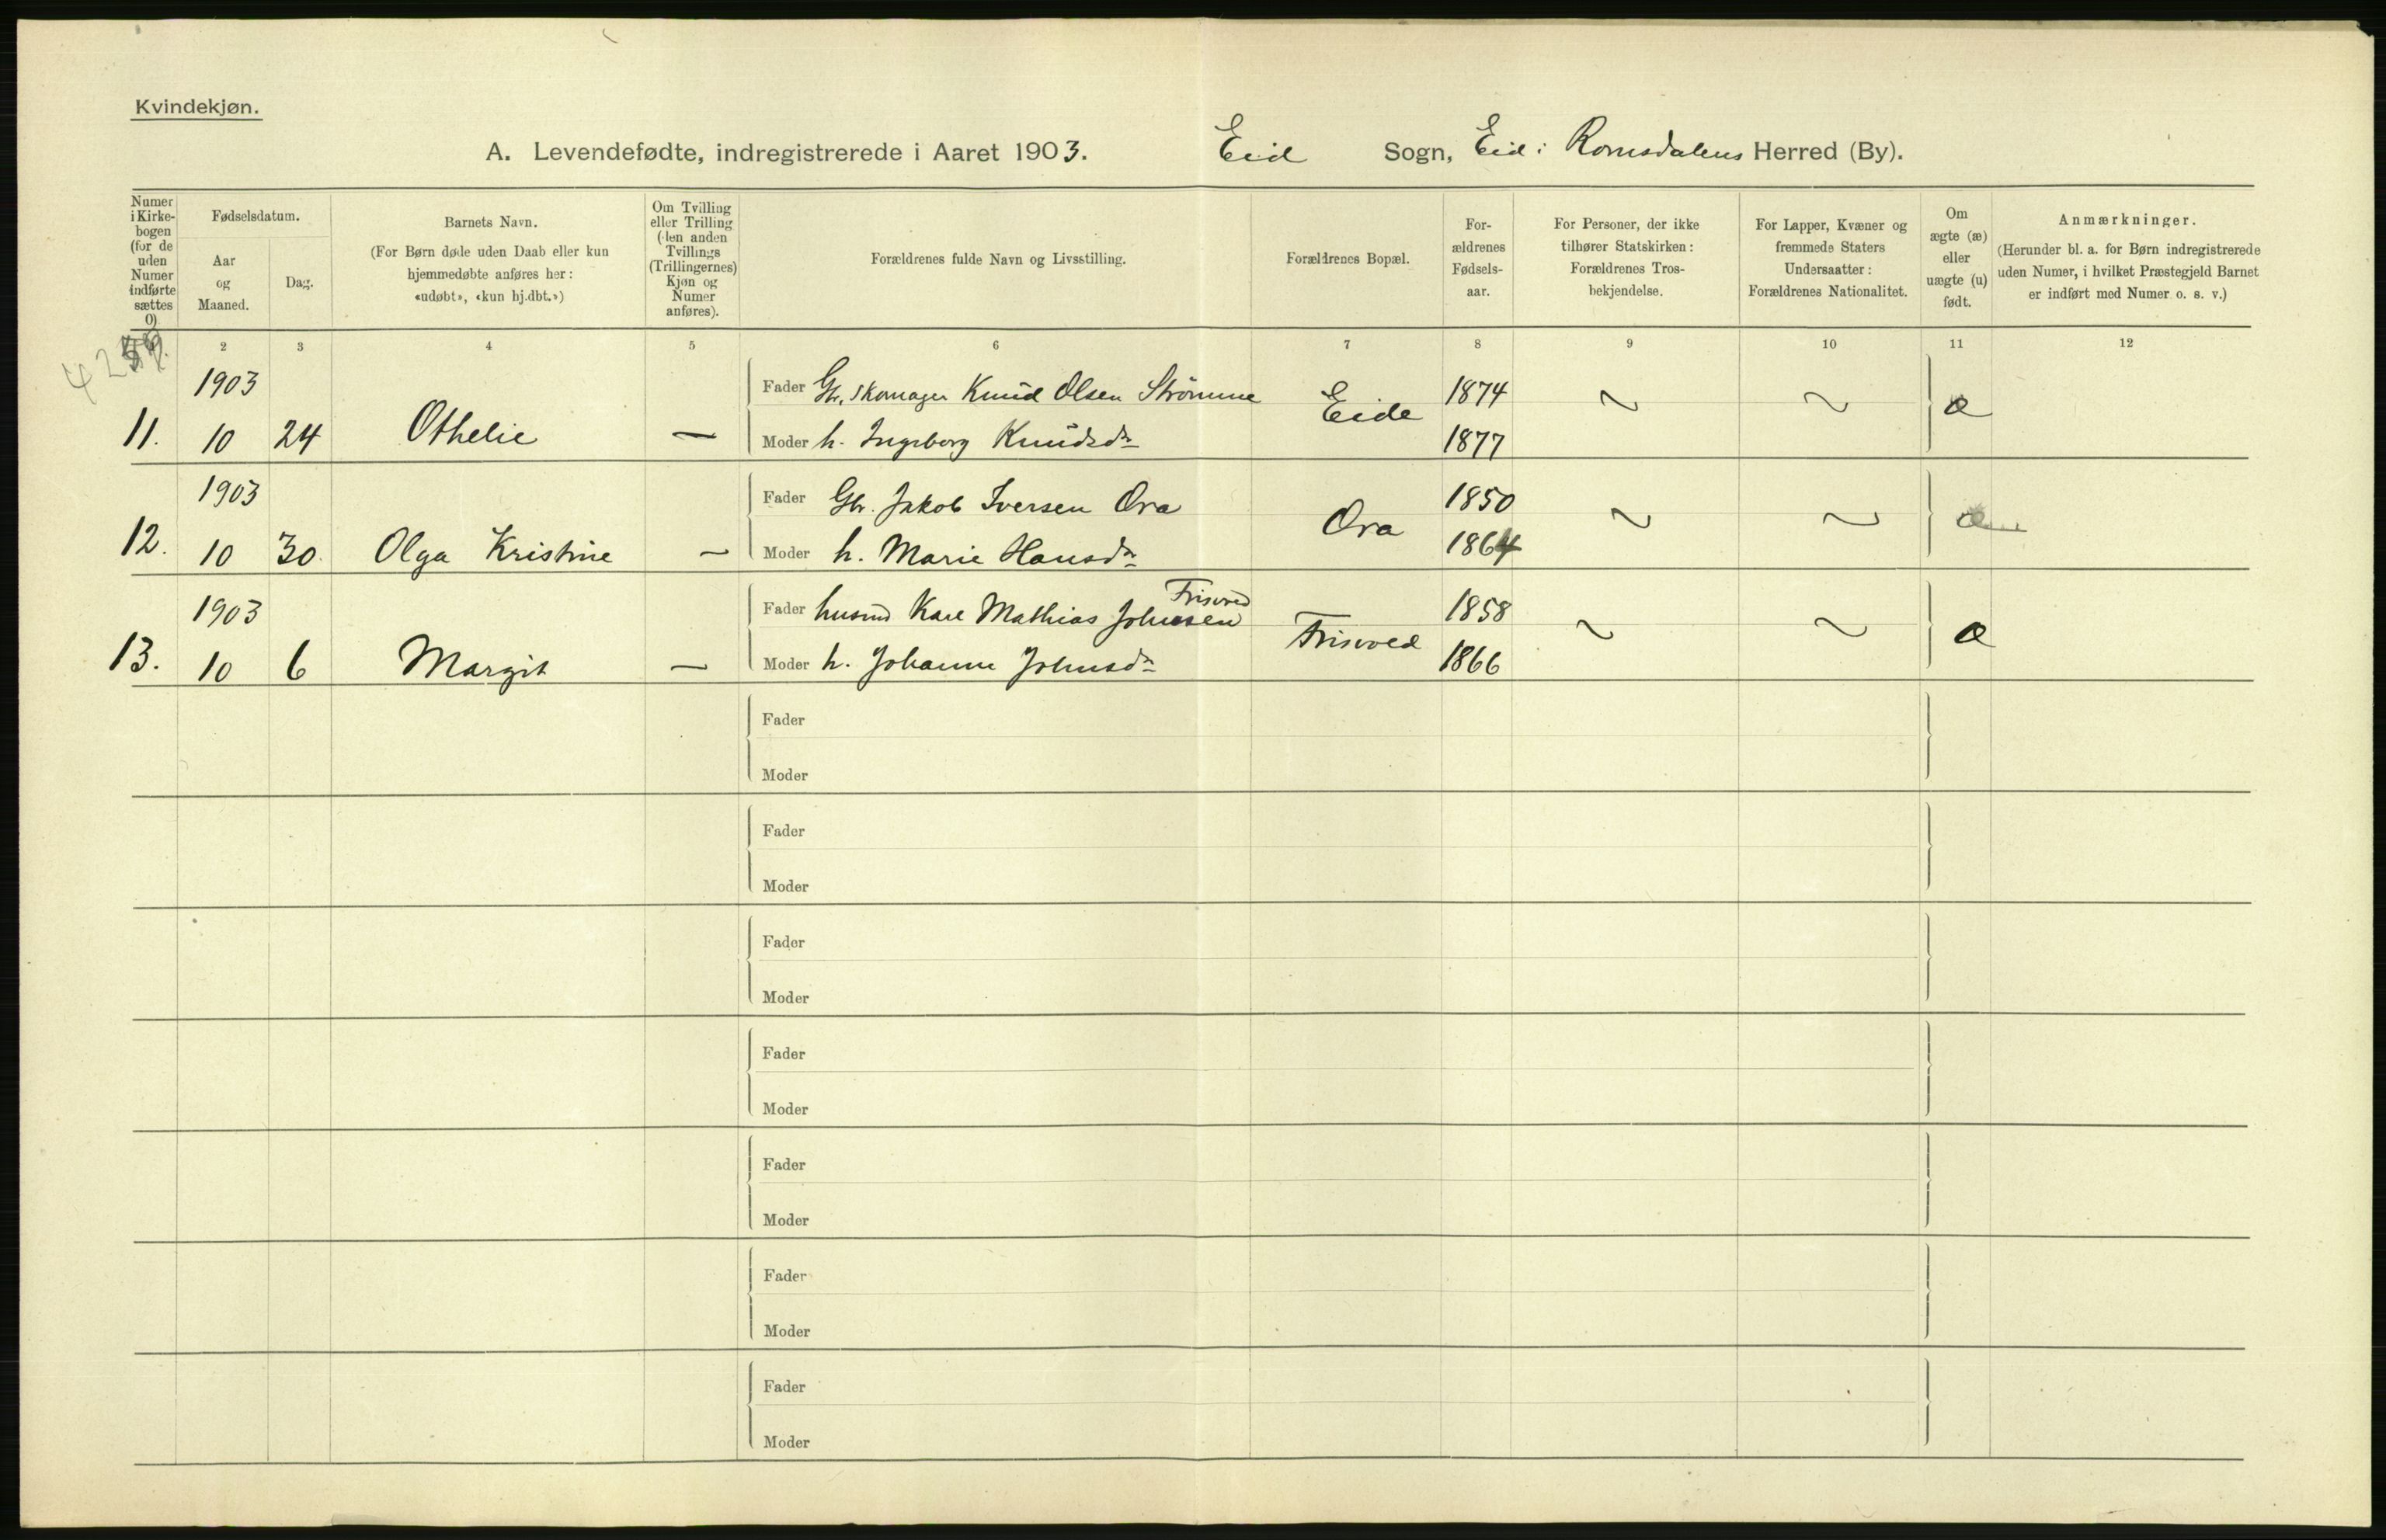 Kvindekjøn.
A. Levendefødte, indregistrerede i Aaret 1903. Eid Sogn, Eid i Romsdalens Herred (By).
Numer i Kirke-bogen (for de uden Numer indførte sættes 0)
Fødselsdatum.
Aar og Maaned.
Dag.
Barnets Navn.
(For Børn døde uden Daab eller kun hjemmedøbte anføres her: «udøbt», «kun hj.dbt.»)
Om Tvilling eller Trilling (den anden Tvillings (Trillingernes) Kjøn og Numer anføres).
Forældrenes fulde Navn og Livsstilling.
Forældrenes Bopæl.
For-ældrenes Fødsels-aar.
For Personer, der ikke tilhører Statskirken: Forældrenes Tros-bekjendelse.
For Lapper, Kvæner og fremmede Staters Undersaatter: Forældrenes Nationalitet.
Om ægte (æ) eller uægte (u) født.
Anmærkninger.
(Herunder bl. a. for Børn indregistrerede uden Numer, i hvilket Præstegjeld Barnet er indført med Numer o. s. v.)
2 3 4 5 6 7 8 9 10 11 12
1903 Fader Gbr. Skomager Knud Olsen Strömme Eide 1874 ~ ~ æ
11. 10 24 Othelie — Moder h. Ingeborg Knudsdr 1877
1903 Fader Gbr. Jakob Iversen Ora Ora 1850 ~ ~ æ
12. 10 30. Olga Kristine — Moder h. Marie Hansdr 1864
Frisvold
1903 Fader husmd Karl Mathias Johnsen Frisvold 1858 ~ ~ æ
13. 10 6 Margit — Moder h. Johanne Johnsdr 1866
Fader
Moder
Fader
Moder
Fader
Moder
Fader
Moder
Fader
Moder
Fader
Moder
Fader
Moder